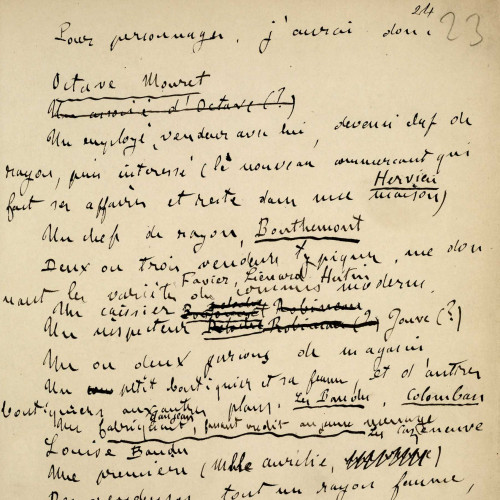 24
23
Pour personnages, j'aurai donc
Octave Mouret
Un associé d'Octave (?)
Un employé, vendeur avec lui, devenu chef de
rayon, puis intéressé (le nouveau commerçant qui
fait ses affaires et reste dans une maison)
Hervieu
Un chef de rayon, Bouthemont
Deux ou trois vendeurs typiques, me don-
nant les variétés du commis moderne,
Favier, Liénard, Hutin
Un caissier
Un inspecteur Jouve (?)
Un ou deux garçons de magasin
Un petit boutiquier et sa femme et d'autres
boutiquiers aux autres plans, Les Baudu, Colomban
Un fabricant, ménage
Louise Baudu
Une première (Mlle Aurélie,
tout un rayon femme,